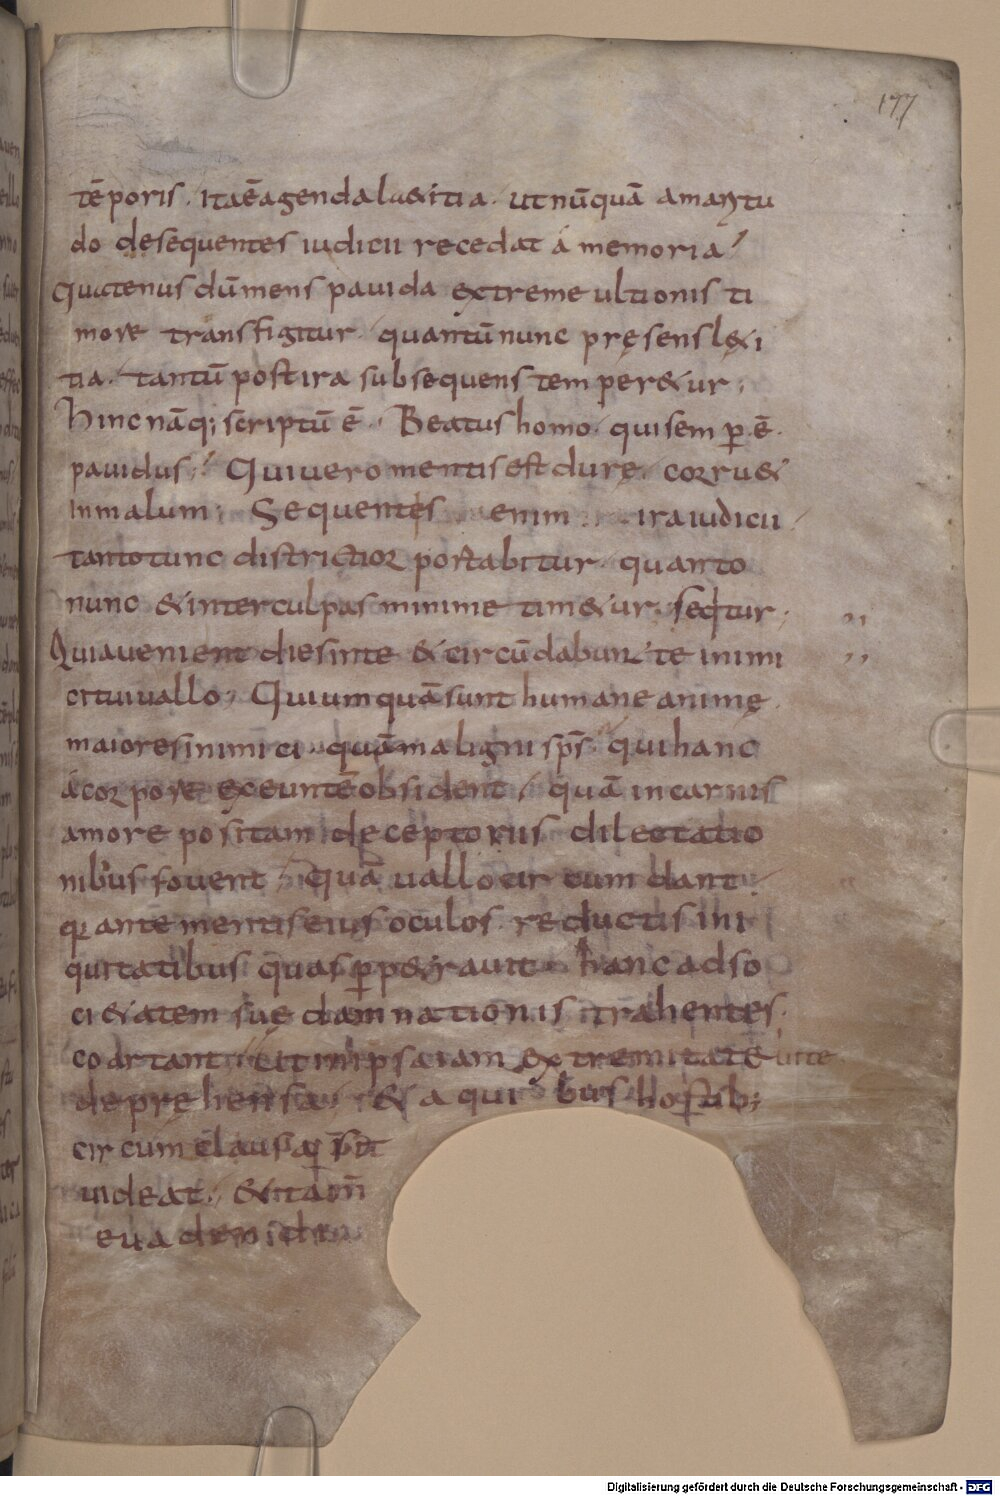 177
tēporis . ita ē agenda lætitia . ut nūquā amaritu
do de sequentes iudicii recedat á memoria ;
Quatenus dū mens pauida extreme ultionis ti
more transfigitur . quantū nunc pręsens lęti
tia . tantū post ira subsequens temperetur ;
Hinc nāq; scriptū ē . Beatus homo . qui semp ē
pauidus ; Qui uero mentis est durę . corruet
in malum ; Sequentes enim ira iudicii
tanto tunc districtior portabitur . quanto
nunc & inter culpas minime timetur . seqtur ;
Quia uenient dies in te & circūdabunt te inimi
ci tui uallo ; Qui umquā sunt humane animę
maiores inimici . quā maligni sps . qui hanc
á corpore exeuntē obsident . quā in carnis
amore positam deceptoriis dilectatio
nibus fouent ; Quā uallo circumdant .
q ante mentis eius oculos reductis ini
quitatibus quas ppetrauit hanc ad so
cietatem suę damnationis trahentes .
coartant . ut in ipsa iam extremitate uite
deprehensa . & a quibus hostib;
circumclausa sit
uideat . & tam̄
euadendi
Digitalisierung gefördert durch die Deutsche Forschungsgemeinschaft - DFG